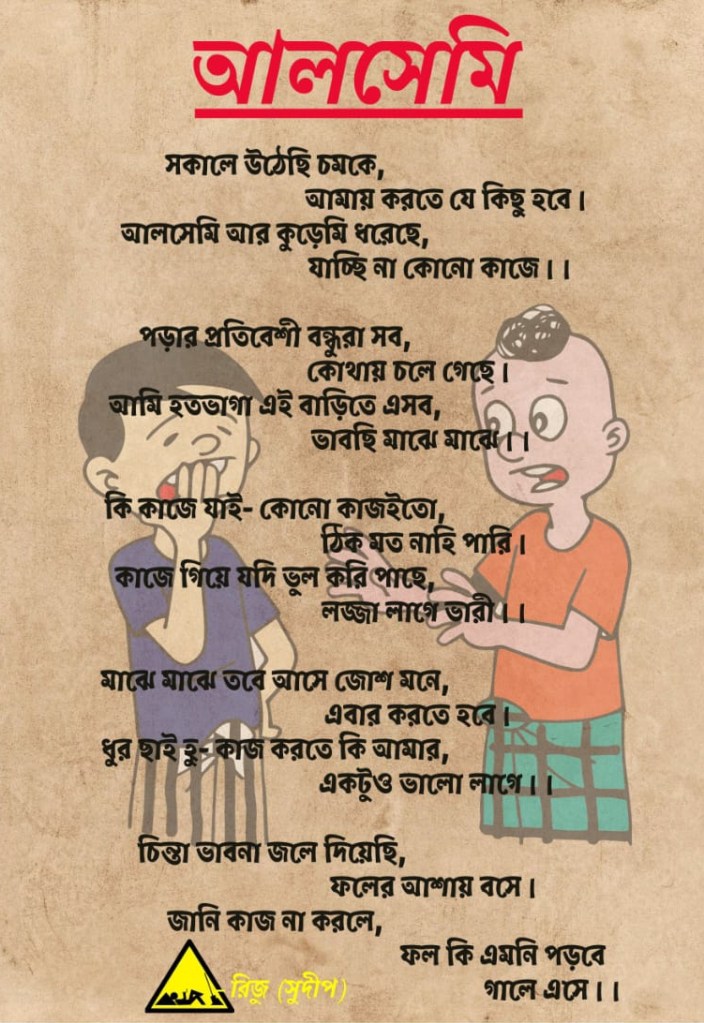 আলসেমি
সকালে উঠেছি চমকে,
আমায় করতে যে কিছু হবে।
আলসেমি আর কুড়েমি ধরেছে,
যাচ্ছি না কোনো কাজে।।
পড়ার প্রতিবেশী বন্ধুরা সব,
কোথায় চলে গেছে।
আমি হতভাগা এই বাড়িতে এসব,
ভাবছি মাঝে মাঝে।।
কি কাজে যাই- কোনো কাজইতো,
ঠিক মত নাহি পারি।
কাজে গিয়ে যদি ভুল করি পাছে,
লজ্জা লাগে ভারী।।
মাঝে মাঝে তবে আসে জোশ মনে,
এবার করতে হবে।
ধুর ছাই হু- কাজ করতে কি আমার,
একটুও ভালো লাগে।।
চিন্তা ভাবনা জলে দিয়েছি,
ফলের আশায় বসে।
জানি কাজ না করলে,
ফল কি এমনি পড়বে
গালে এসে।।
- রিজু (সুদীপ)